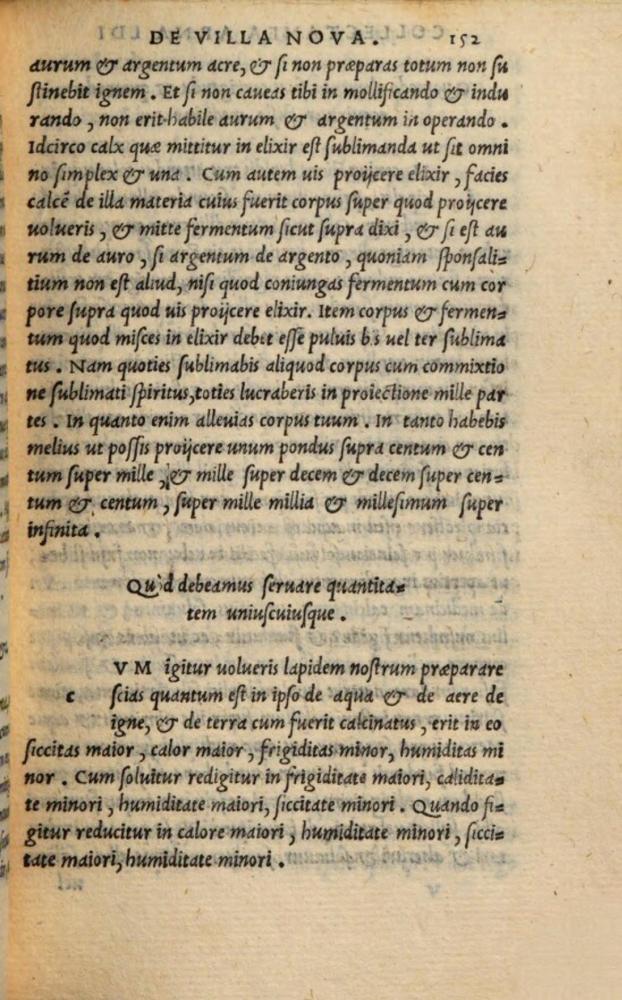 DE VILLA NOVA. 152
aurum & argentum acre, & ſi non præparas totum non ſu
ſtinebit ignem. Et ſi non caueas tibi in mollificando & indu
rando, non erit habile aurum & argentum in operando.
Idcirco calx quæ mittitur in elixir eſt ſublimanda ut ſit omni
no ſimplex & una. Cum autem uis proijcere elixir, facies
calcẽ de illa materia cuius fuerit corpus ſuper quod proijcere
uolueris, & mitte fermentum ſicut ſupra dixi, & ſi eſt au
rum de auro, ſi argentum de argento, quoniam ſponſali=
tium non eſt aliud, niſi quod coniungas fermentum cum cor
pore ſupra quod uis proijcere elixir. Item corpus & fermen=
tum quod miſces in elixir debet eſſe puluis bis uel ter ſublima
tus. Nam quoties ſublimabis aliquod corpus cum commixtio
ne ſublimati ſpiritus, toties lucraberis in proiectione mille par
tes. In quanto enim alleuias corpus tuum. In tanto habebis
melius ut poſſis proijcere unum pondus ſupra centum & cen
tum ſuper mille, & mille ſuper decem & decem ſuper cen=
tum & centum, ſuper mille millia & milleſimum ſuper
infinita.
Quòd debeamus ſeruare quantita=
tem uniuſcuiuſque.
VM igitur uolueris lapidem noſtrum præparare
c ſcias quantum eſt in ipſo de aqua & de aere de
igne, & de terra cum fuerit calcinatus, erit in eo
ſiccitas maior, calor maior, frigiditas minor, humiditas mi
nor. Cum ſoluitur redigitur in frigiditate maiori, calidita=
te minori, humiditate maiori, ſiccitate minori. Quando fi=
gitur reducitur in calore maiori, humiditate minori, ſicci=
tate maiori, humiditate minori.